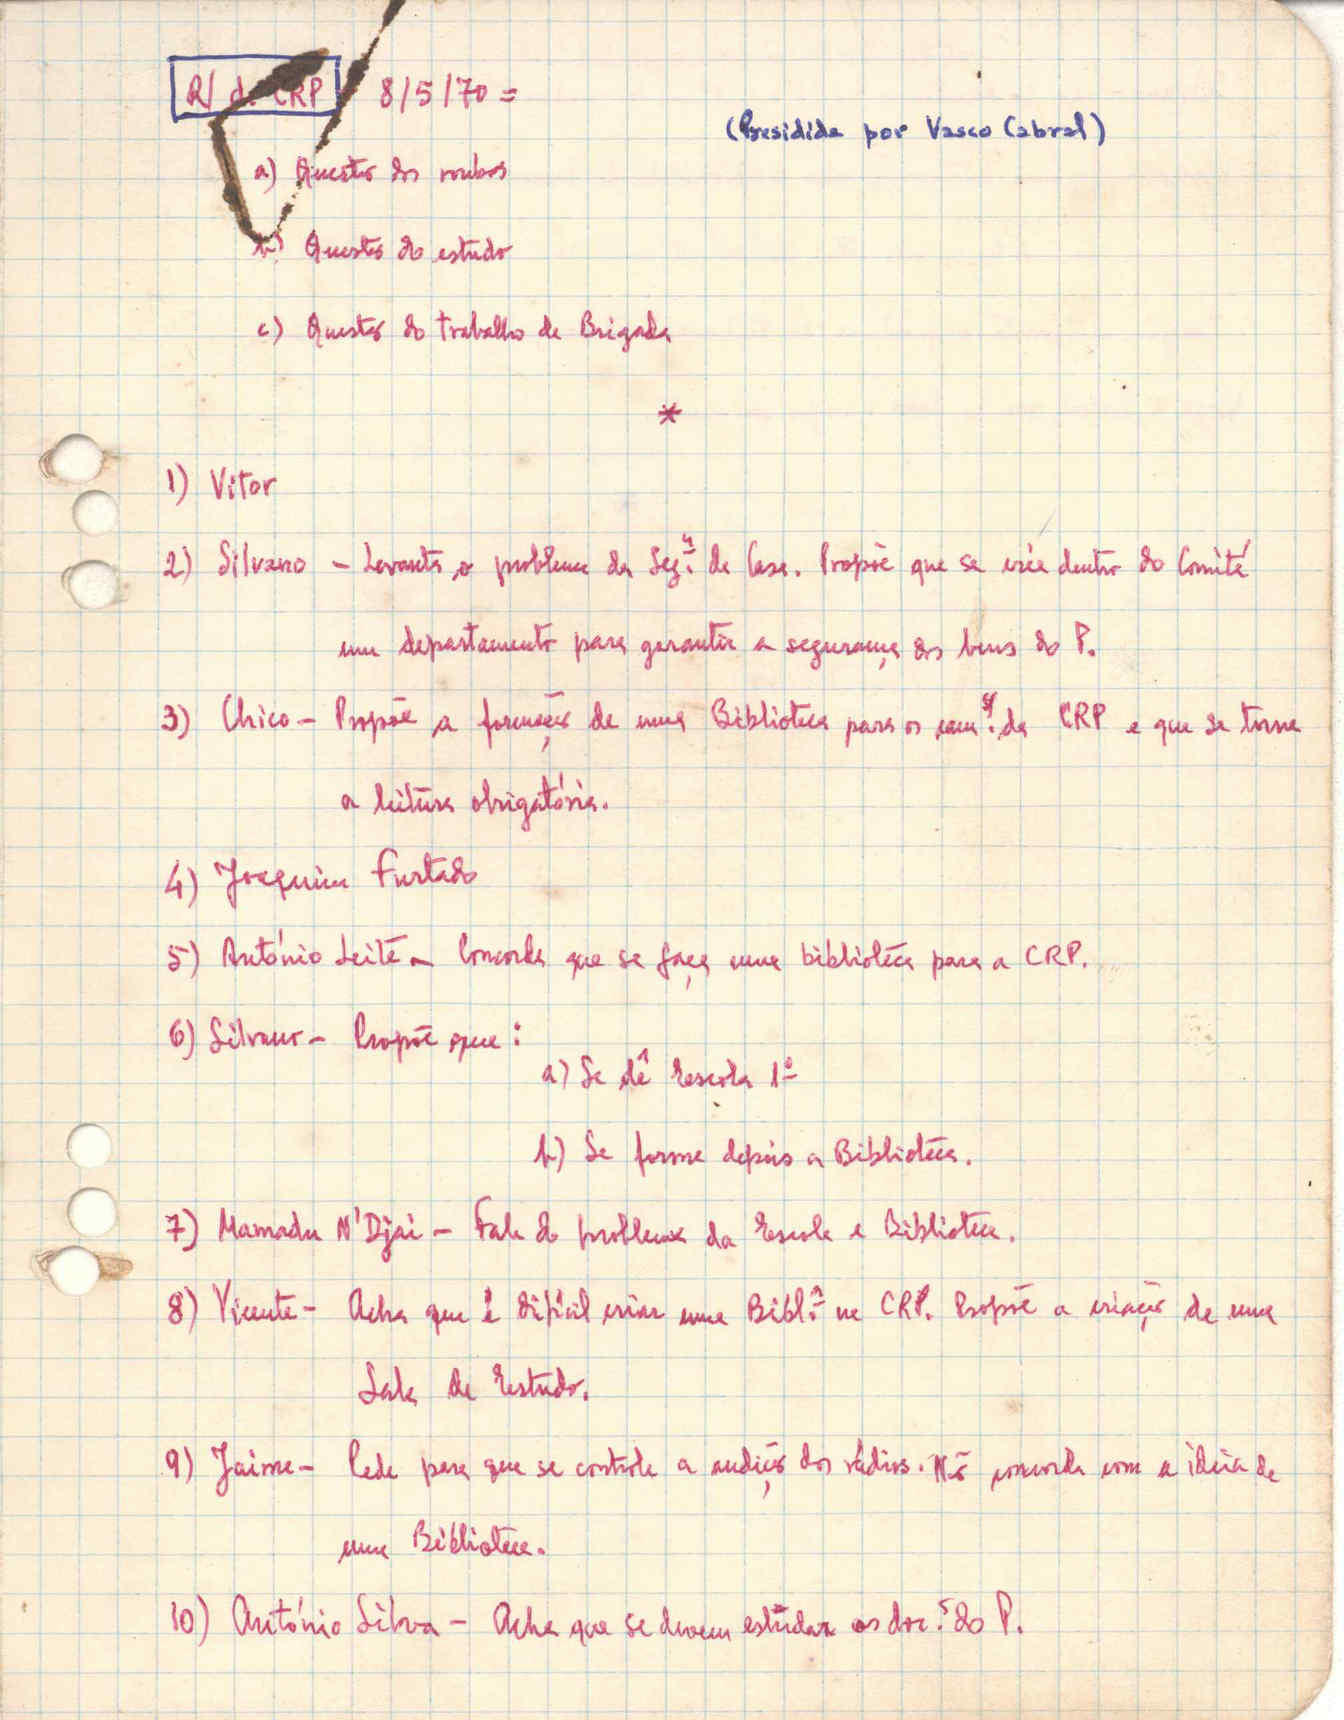 R/ da CRP 8/5/70 =
(Presidida por Vasco Cabral)
a) Questão dos roubos
b) Questão do estudo
c) Questão do trabalho de Brigada
*
1) Vitor
2) Silvano – Levanta o problema da Seg.ª da Casa. Propõe que se crie dentro do Comité
um departamento para garantir a segurança dos bens do P.
3) Chico – Propõe a formação de uma Biblioteca para os cam.as da CRP e que se torne
a leitura obrigatória.
4) Joaquim Furtado
5) António Leite – Concorda que se faça uma biblioteca para a CRP.
6) Silvano – Propõe que :
a) Se dê Escola 1º
b) Se forme depois a Biblioteca.
7) Mamadu N'Djai – Fala do problema da Escola e Biblioteca.
8) Vicente – Acha que é difícil criar uma Bibl.ª na CRP. Propõe a criação de uma
Sala de Estudo.
9) Jaime – Pede para que se controle a audição dos rádios. Não concorda com a ideia de
uma Biblioteca.
10) António Silva – Acha que se devem estudar os doc.s do P.